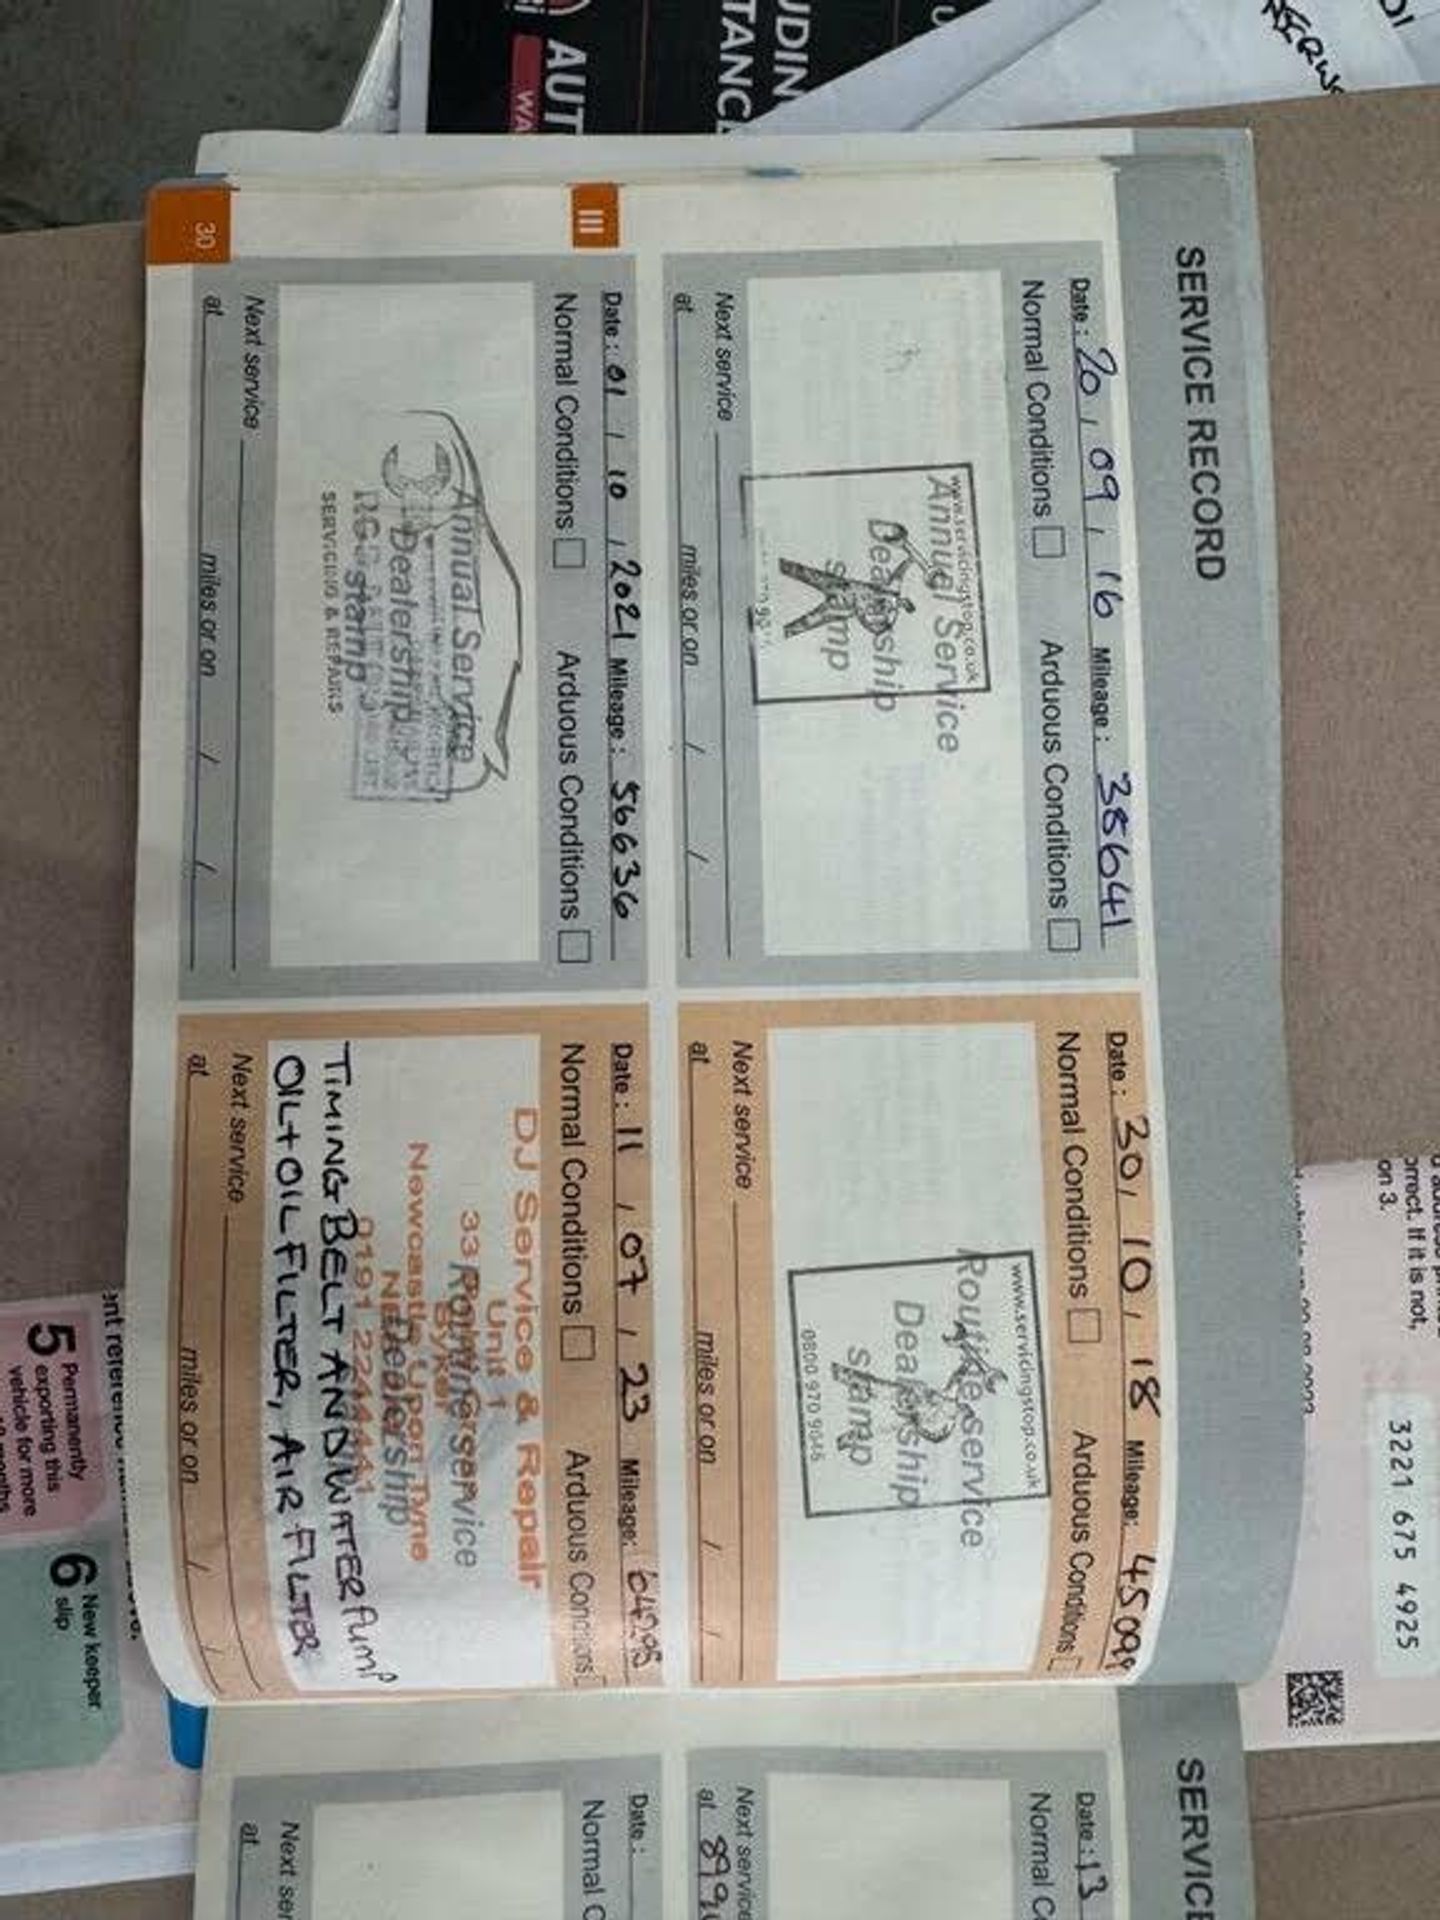 SERVICE RECORD
Date: 20 / 09 / 16 Mileage: 38641
Normal Conditions Arduous Conditions
www.servicingstop.co.uk
Annual Service
Dealership
stamp
Next service
at miles or on / /
Date: 30 / 10 / 18 Mileage:
Normal Conditions Arduous Conditions
www.servicingstop.co.uk
Routine service
Dealership
stamp
0800 970 9045
Next service
at miles or on / /
III
Date: 01 / 10 / 2021 Mileage: 56636
Normal Conditions Arduous Conditions
Annual Service
Dealership
stamp
SERVICING & REPAIRS
Next service
at miles or on / /
30
Date: 11 / 07 / 23 Mileage: 64295
Normal Conditions Arduous Conditions
DJ Service & Repair
Unit 1
33
Routine service
Byker
Newcastle Upon Tyne
Dealership
0191 2244441
TIMING BELT AND WATER PUMP
OIL + OIL FILTER, AIR FILTER
Next service
at miles or on / /
SERVICE
Date: 13
Normal C
Next service
at 899
Date:
Normal C
Next ser
at
AUT
WA
UDIN
TANC
orrect. If it is not,
on 3.
3221 675 4925
5 Permanently
exporting this
vehicle for more
6 New keeper
slip